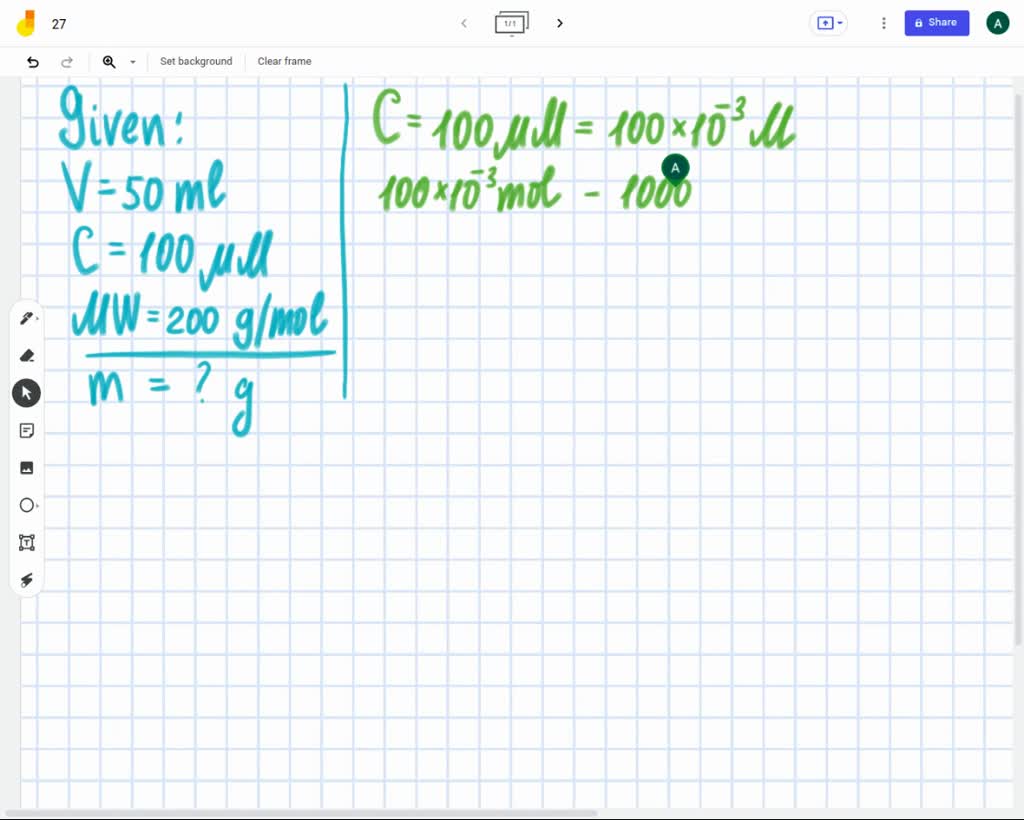 27
1/1
Share
A
Set background
Clear frame
Given:
V = 50 ml
C = 100 μM
MW = 200 g/mol
m = ? g
C = 100 μM = 100 × 10⁻³ M
100 × 10⁻³ mol - 1000
A
T